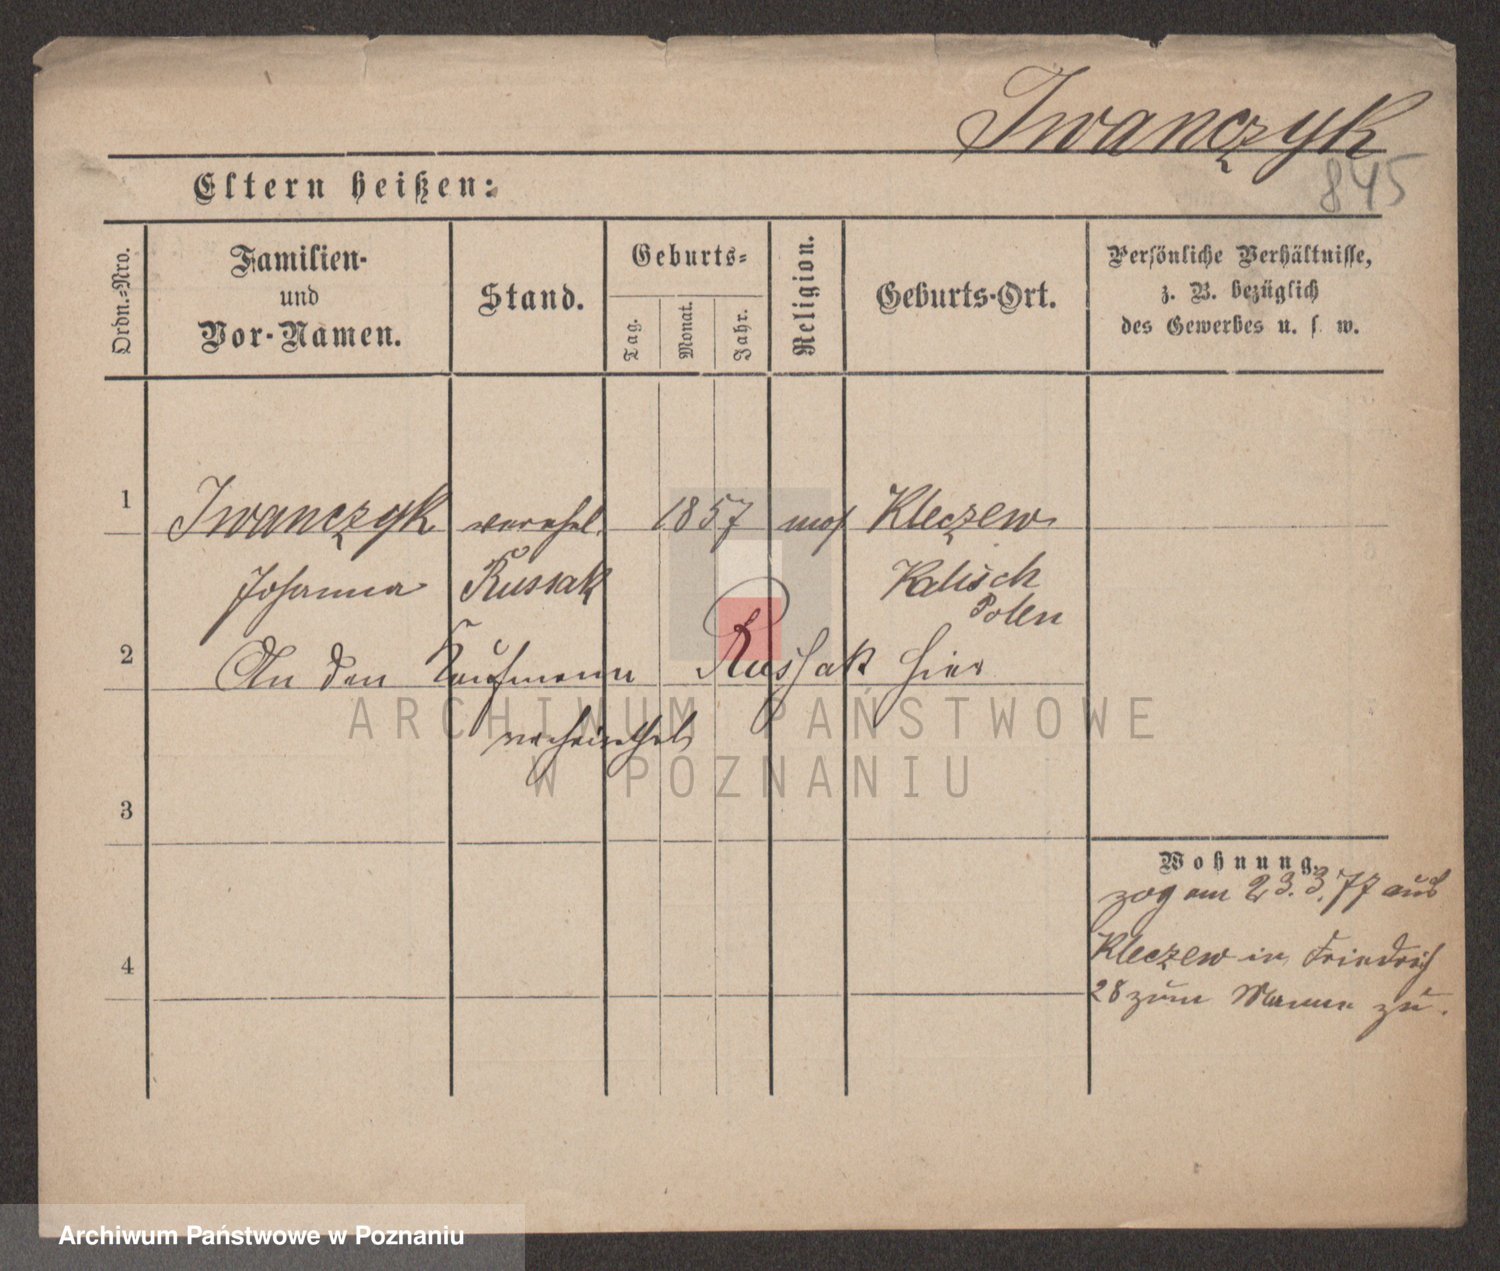 Iwanczyk
845
Eltern heißen:
Ordn.-Nro.
Familien-
und
Vor-Namen.
Stand.
Geburts-
Tag.
Monat.
Jahr.
Religion.
Geburts-Ort.
Persönliche Verhältnisse,
z. B. bezüglich
des Gewerbes u. s. w.
1 Iwanczyk verehel. 1857 mos Kleczew
Johanna Russak Kalisch
Polen
2 An den Kaufmann Russak hier
verheirathet
ARCHIWUM PAŃSTWOWE
W POZNANIU
3
Wohnung.
zog am 23.3.77 aus
Kleczew in Friedrich
28 zum Manne zu.
4
Archiwum Państwowe w Poznaniu